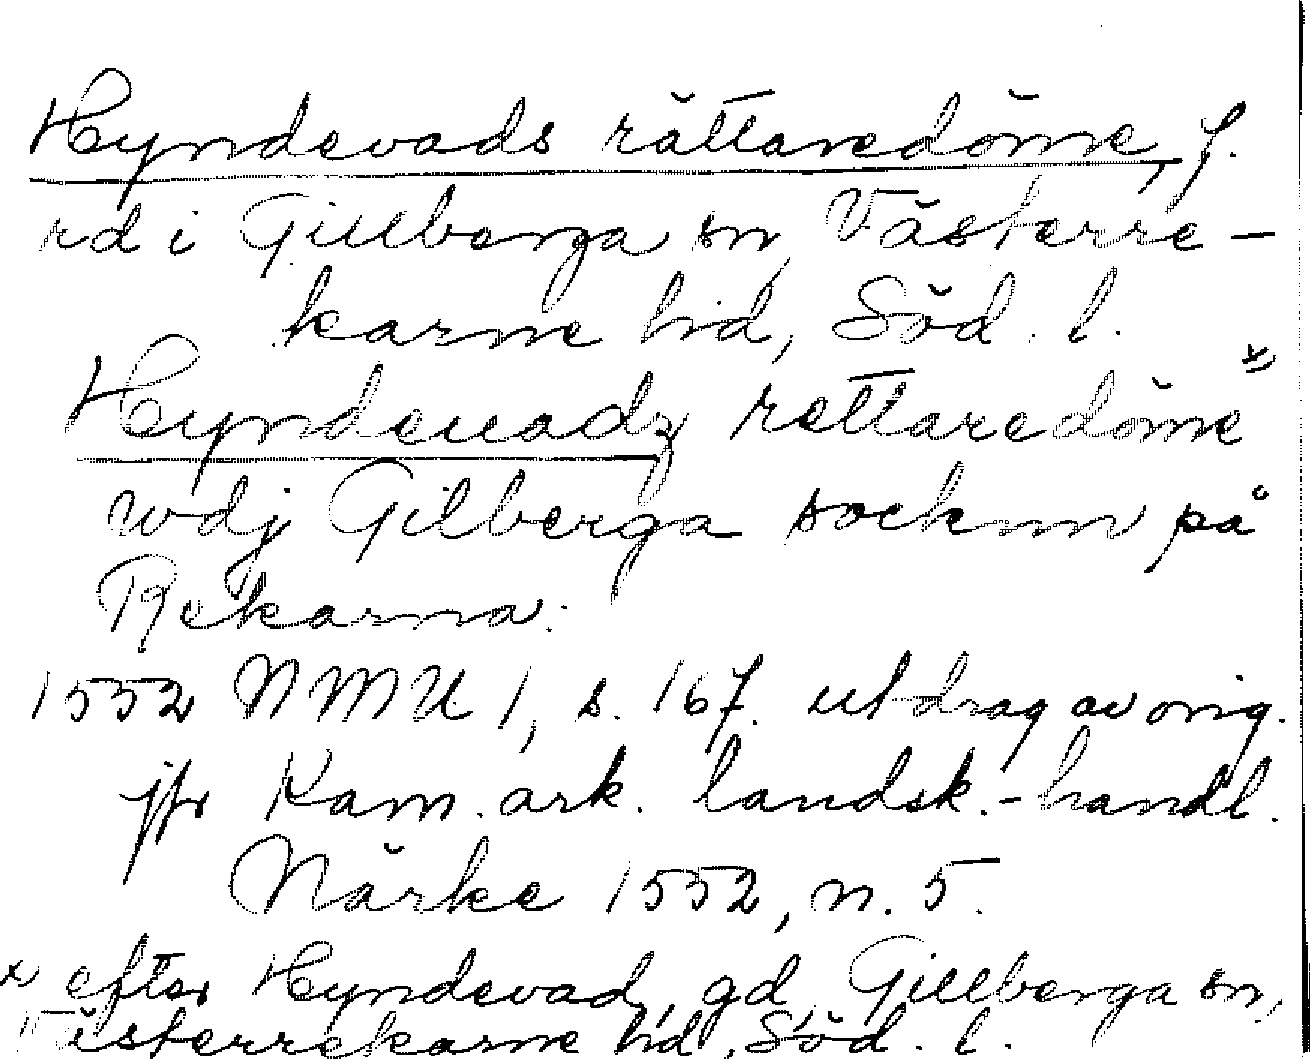 Hyndevads rättaredöme, f.
rd i Gillberga sn, Västerre-
karne hd, Söd. l.
Hyndeuadz rettaredöme x)
wdj Gilberga socknn på
Rekarna.
1552 NMU 1, s. 167. utdrag av orig.
jfr Kam. ark. landsk.-handl.
Närke 1552, n. 5.
x efter Hyndevad, gd, Gillberga sn,
Västerrekarne hd, Söd. l.